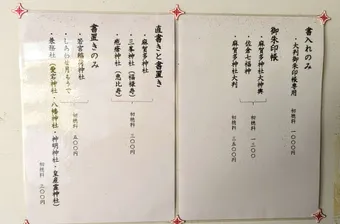 書入れのみ
・大判御朱印帳専用
初穂料 一〇〇〇円
御朱印帳
・麻賀多神社大神輿
・佐倉七福神
初穂料 一三〇〇
・麻賀多神社大判
初穂料 二五〇〇円
直書きと書置き
・麻賀多神社
・三峯神社(福禄寿)
・飛膺神社(恵比寿)
初穂料 三〇〇円
書置きのみ
・若宮館月神社
・しあわせ男もうで
初穂料 五〇〇円
・兼務社(愛宕神社・八幡神社・神明神社・皇産霊神社)
初穂料 三〇〇円